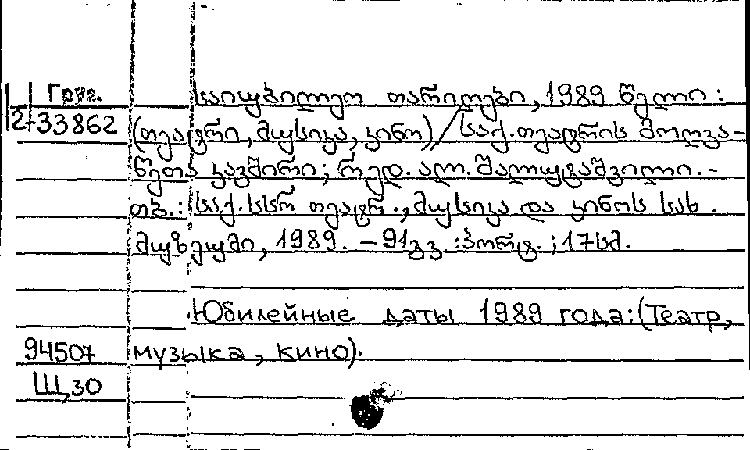 Груз.
2-33862
საიუბილეო თარიღები, 1989 წელი:
(თეატრი, მუსიკა, კინო) / საქ. თეატრის მოღვა-
წეთა კავშირი; რედ. ალ. შალუტაშვილი. -
თბ.: საქ. სსრ თეატრ., მუსიკა და კინოს სახ.
მუზეუმი, 1989. – 91 გვ. : პორტ. ; 17 სმ.
Юбилейные даты 1989 года: (Театр,
94507 музыка, кино).
Щ30